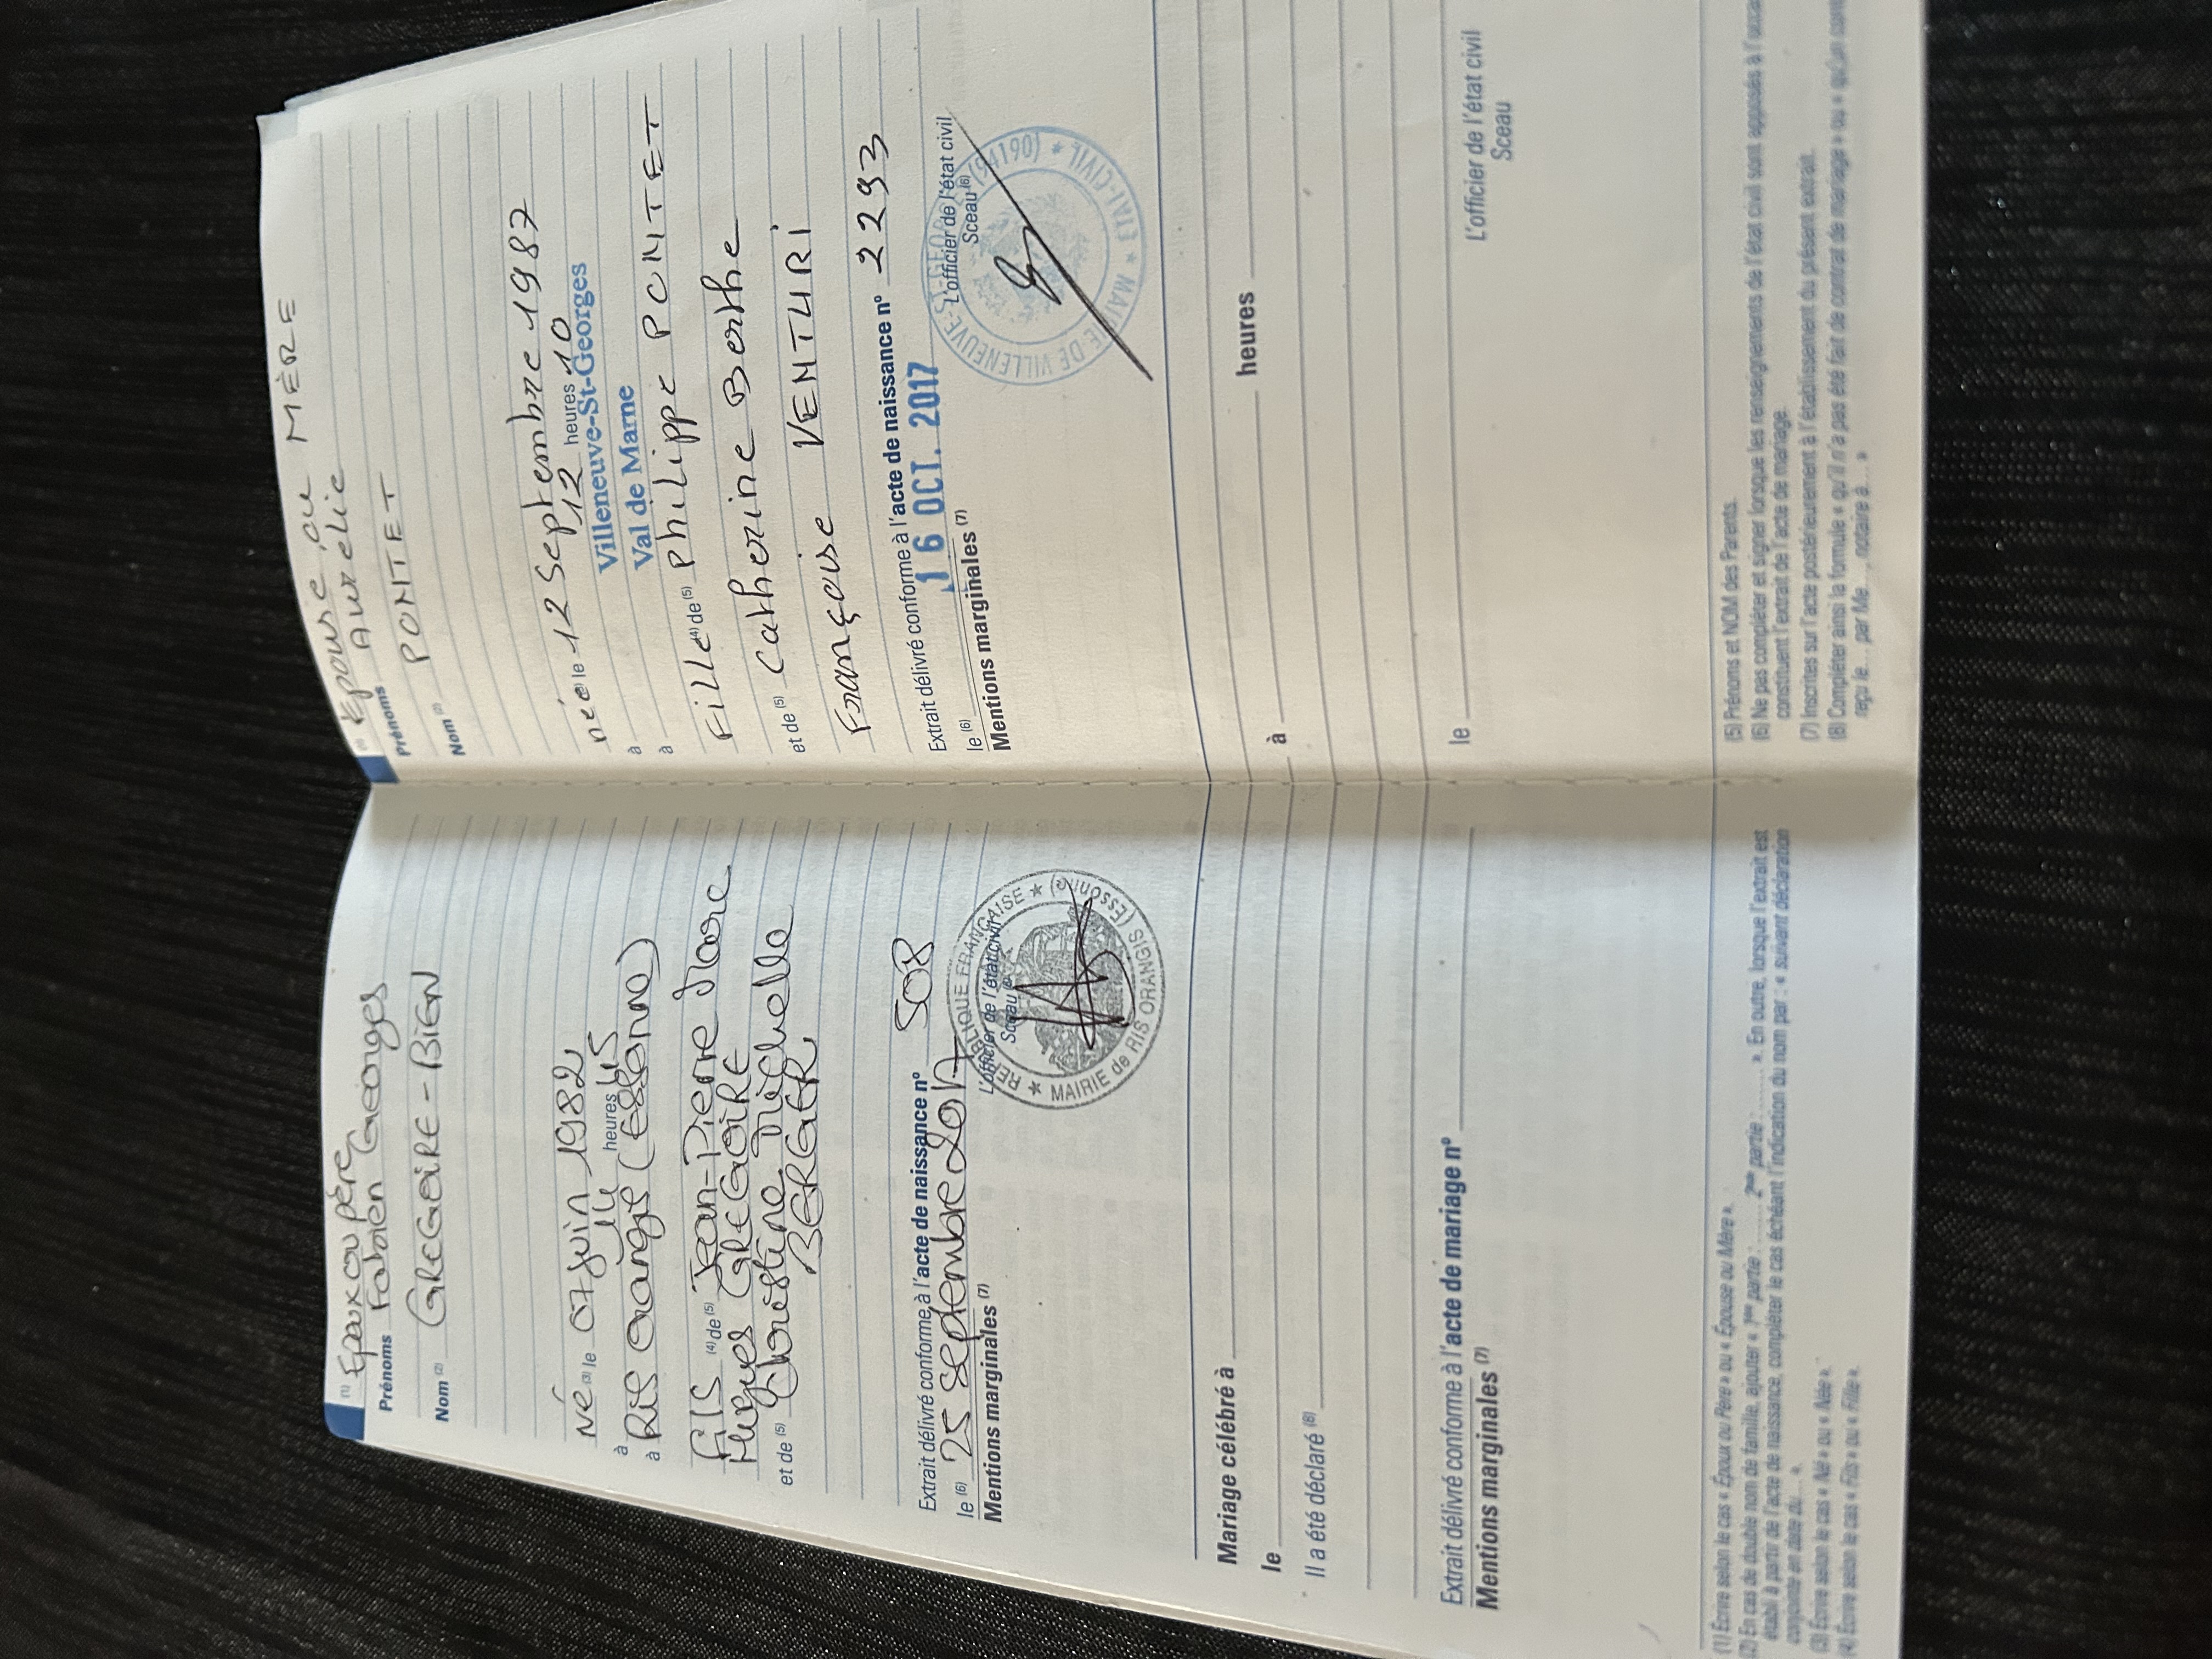 (1) Epoux ou père
Prénoms Fabien Georges
Nom (2) GREGOIRE-BIEN
Né (3) le 07 juin 1982
à 14 heures 45
à Ris Orangis (Essonne)
fils (4) de (5) Jean-Pierre Marc
Hugues GREGOIRE
et de (5) Christine Michelle
BERGER
Extrait délivré conforme à l'acte de naissance nº 508
le (6) 25 septembre 2017
L'officier de l'état civil
Sceau (6)
★ RÉPUBLIQUE FRANÇAISE ★ MAIRIE de RIS ORANGIS (Essonne)
Mentions marginales (7)
Mariage célébré à
le
Il a été déclaré (8)
Extrait délivré conforme à l'acte de mariage nº
Mentions marginales (7)
(1) Écrire selon le cas « Époux ou Père » ou « Épouse ou Mère ».
(2) En cas de double nom de famille, ajouter « 1ère partie : ........ 2ème partie : ........ ». En outre, lorsque l'extrait est
établi à partir de l'acte de naissance, compléter le cas échéant l'indication du nom par : « suivant déclaration
conjointe en date du... ».
(3) Écrire selon le cas « Né » ou « Née ».
(4) Écrire selon le cas « Fils » ou « Fille ».
(1) Epouse ou MÈRE
Prénoms Aurélie
PONTET
Nom (2)
née (3) le 12 Septembre 1987
à 12 heures 10
à Villeneuve-St-Georges
Val de Marne
Fille (4) de (5) Philippe PONTET
et de (5) Catherine Berthe
Françoise VENTURI
Extrait délivré conforme à l'acte de naissance nº 2293
le (6) 16 OCT. 2017
L'officier de l'état civil
Sceau (6)
MAIRIE DE VILLENEUVE-ST-GEORGES (94190) ★ ETAT-CIVIL ★
Mentions marginales (7)
à heures
le
L'officier de l'état civil
Sceau
(5) Prénoms et NOM des Parents.
(6) Ne pas compléter et signer lorsque les renseignements de l'état civil sont apposés à
constituent l'extrait de l'acte de mariage.
(7) Inscrites sur l'acte postérieurement à l'établissement du présent extrait.
(8) Compléter ainsi la formule « qu'il n'a pas été fait de contrat de mariage » ou « qu'un
reçu le... par Me..., notaire à... »